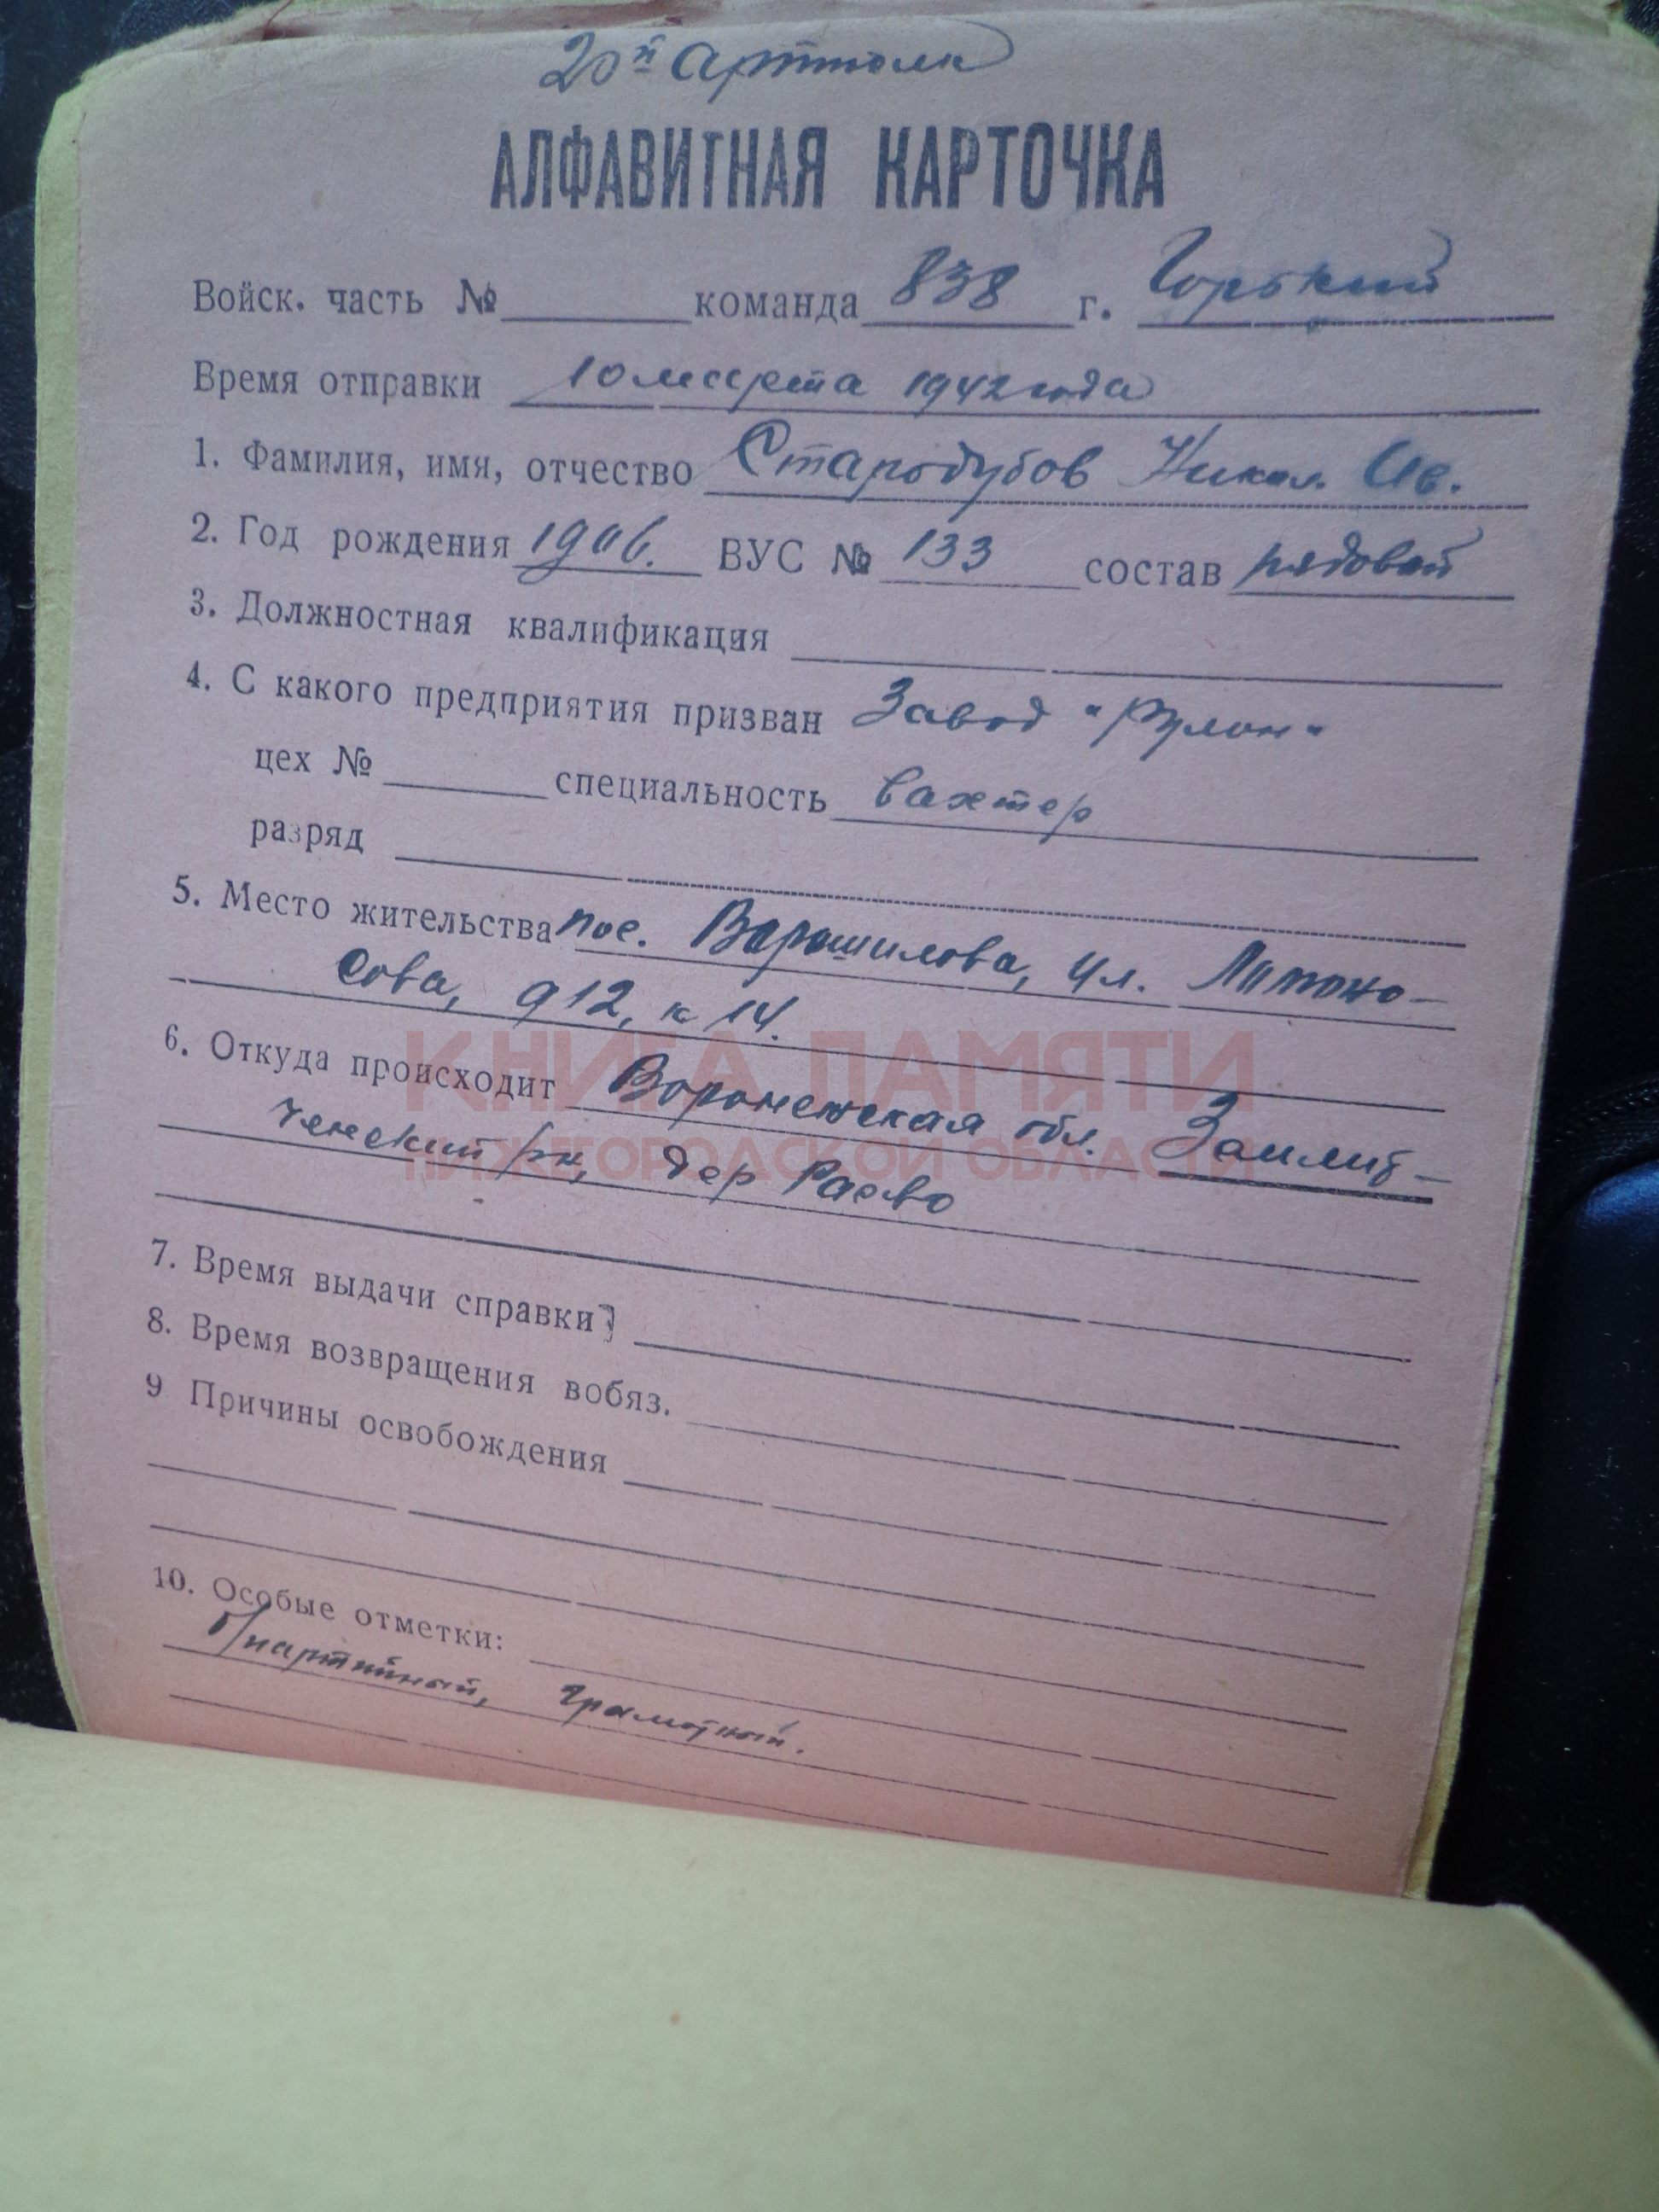 20й артполк
АЛФАВИТНАЯ КАРТОЧКА
Войск. часть № команда 838 г. Горький
Время отправки 10 марта 1942 года
1. Фамилия, имя, отчество Стародубов Никол. Ив.
2. Год рождения 1906. ВУС № 133 состав рядовой
3. Должностная квалификация
4. С какого предприятия призван Завод "Рулон"
цех № специальность вахтер
разряд
5. Место жительства пос. Ворошилова, ул.
сова, д 12, к 14.
КНИГА ПАМЯТИ
6. Откуда происходит Воронежская обл.
НИЖЕГОРОДСКОЙ ОБЛАСТИ
ченский рн, дер Раево
7. Время выдачи справки
8. Время возвращения вобяз.
9 Причины освобождения
10. Особые отметки:
грамотный.